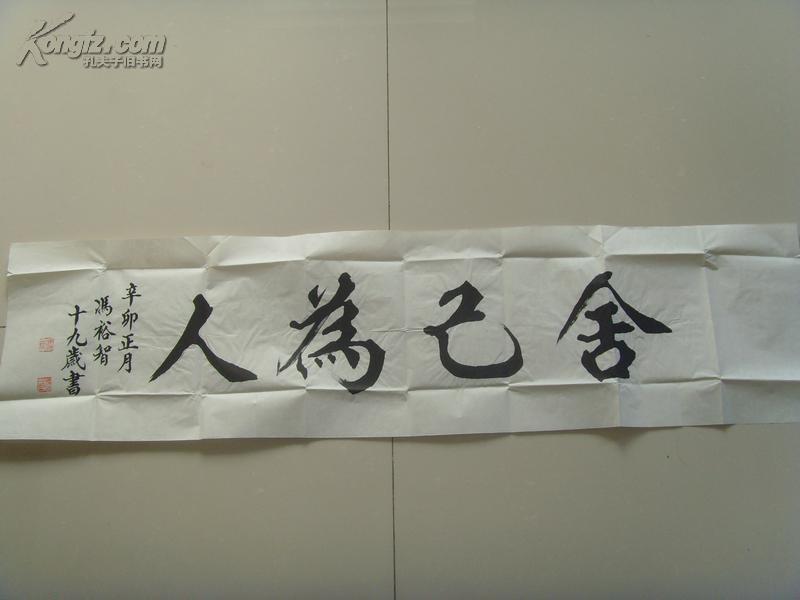 舍己為人
辛卯正月
馮裕智
十九歲書
Kongfz.com
孔夫子旧书网